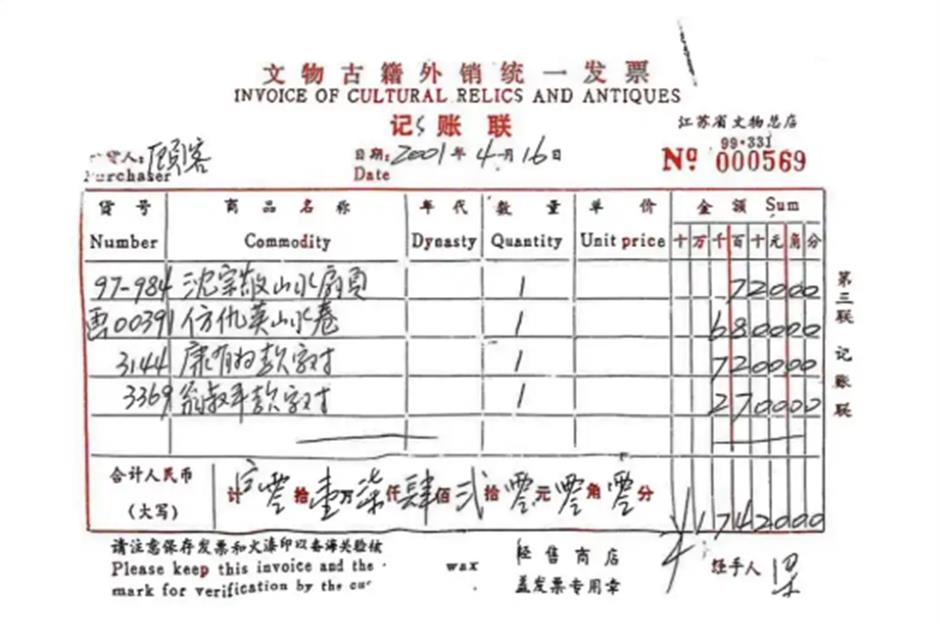 文物古籍外销统一发票
INVOICE OF CULTURAL RELICS AND ANTIQUES
记账联
江苏省文物总店
99·331
货人: 顾客
Purchaser
日期: 2001年4月16日
Date
No 000569
货号 商品名称 年代 数量 单价 金额 Sum
Number Commodity Dynasty Quantity Unit price 十万千百十元角分
97-984 沈宗敬山水扇页 1 72000
00391 仿仇英山水卷 1 680000
3144 康有为款字对 1 720000
3369 翁叔平款字对 1 270000
合计人民币
(大写)
计 零拾壹万柒仟肆佰贰拾零元零角零分 ¥1742000
请注意保存发票和火漆印以备海关验核
Please keep this invoice and the wax
mark for verification by the
经售商店
盖发票专用章
经手人
第三联 记账联